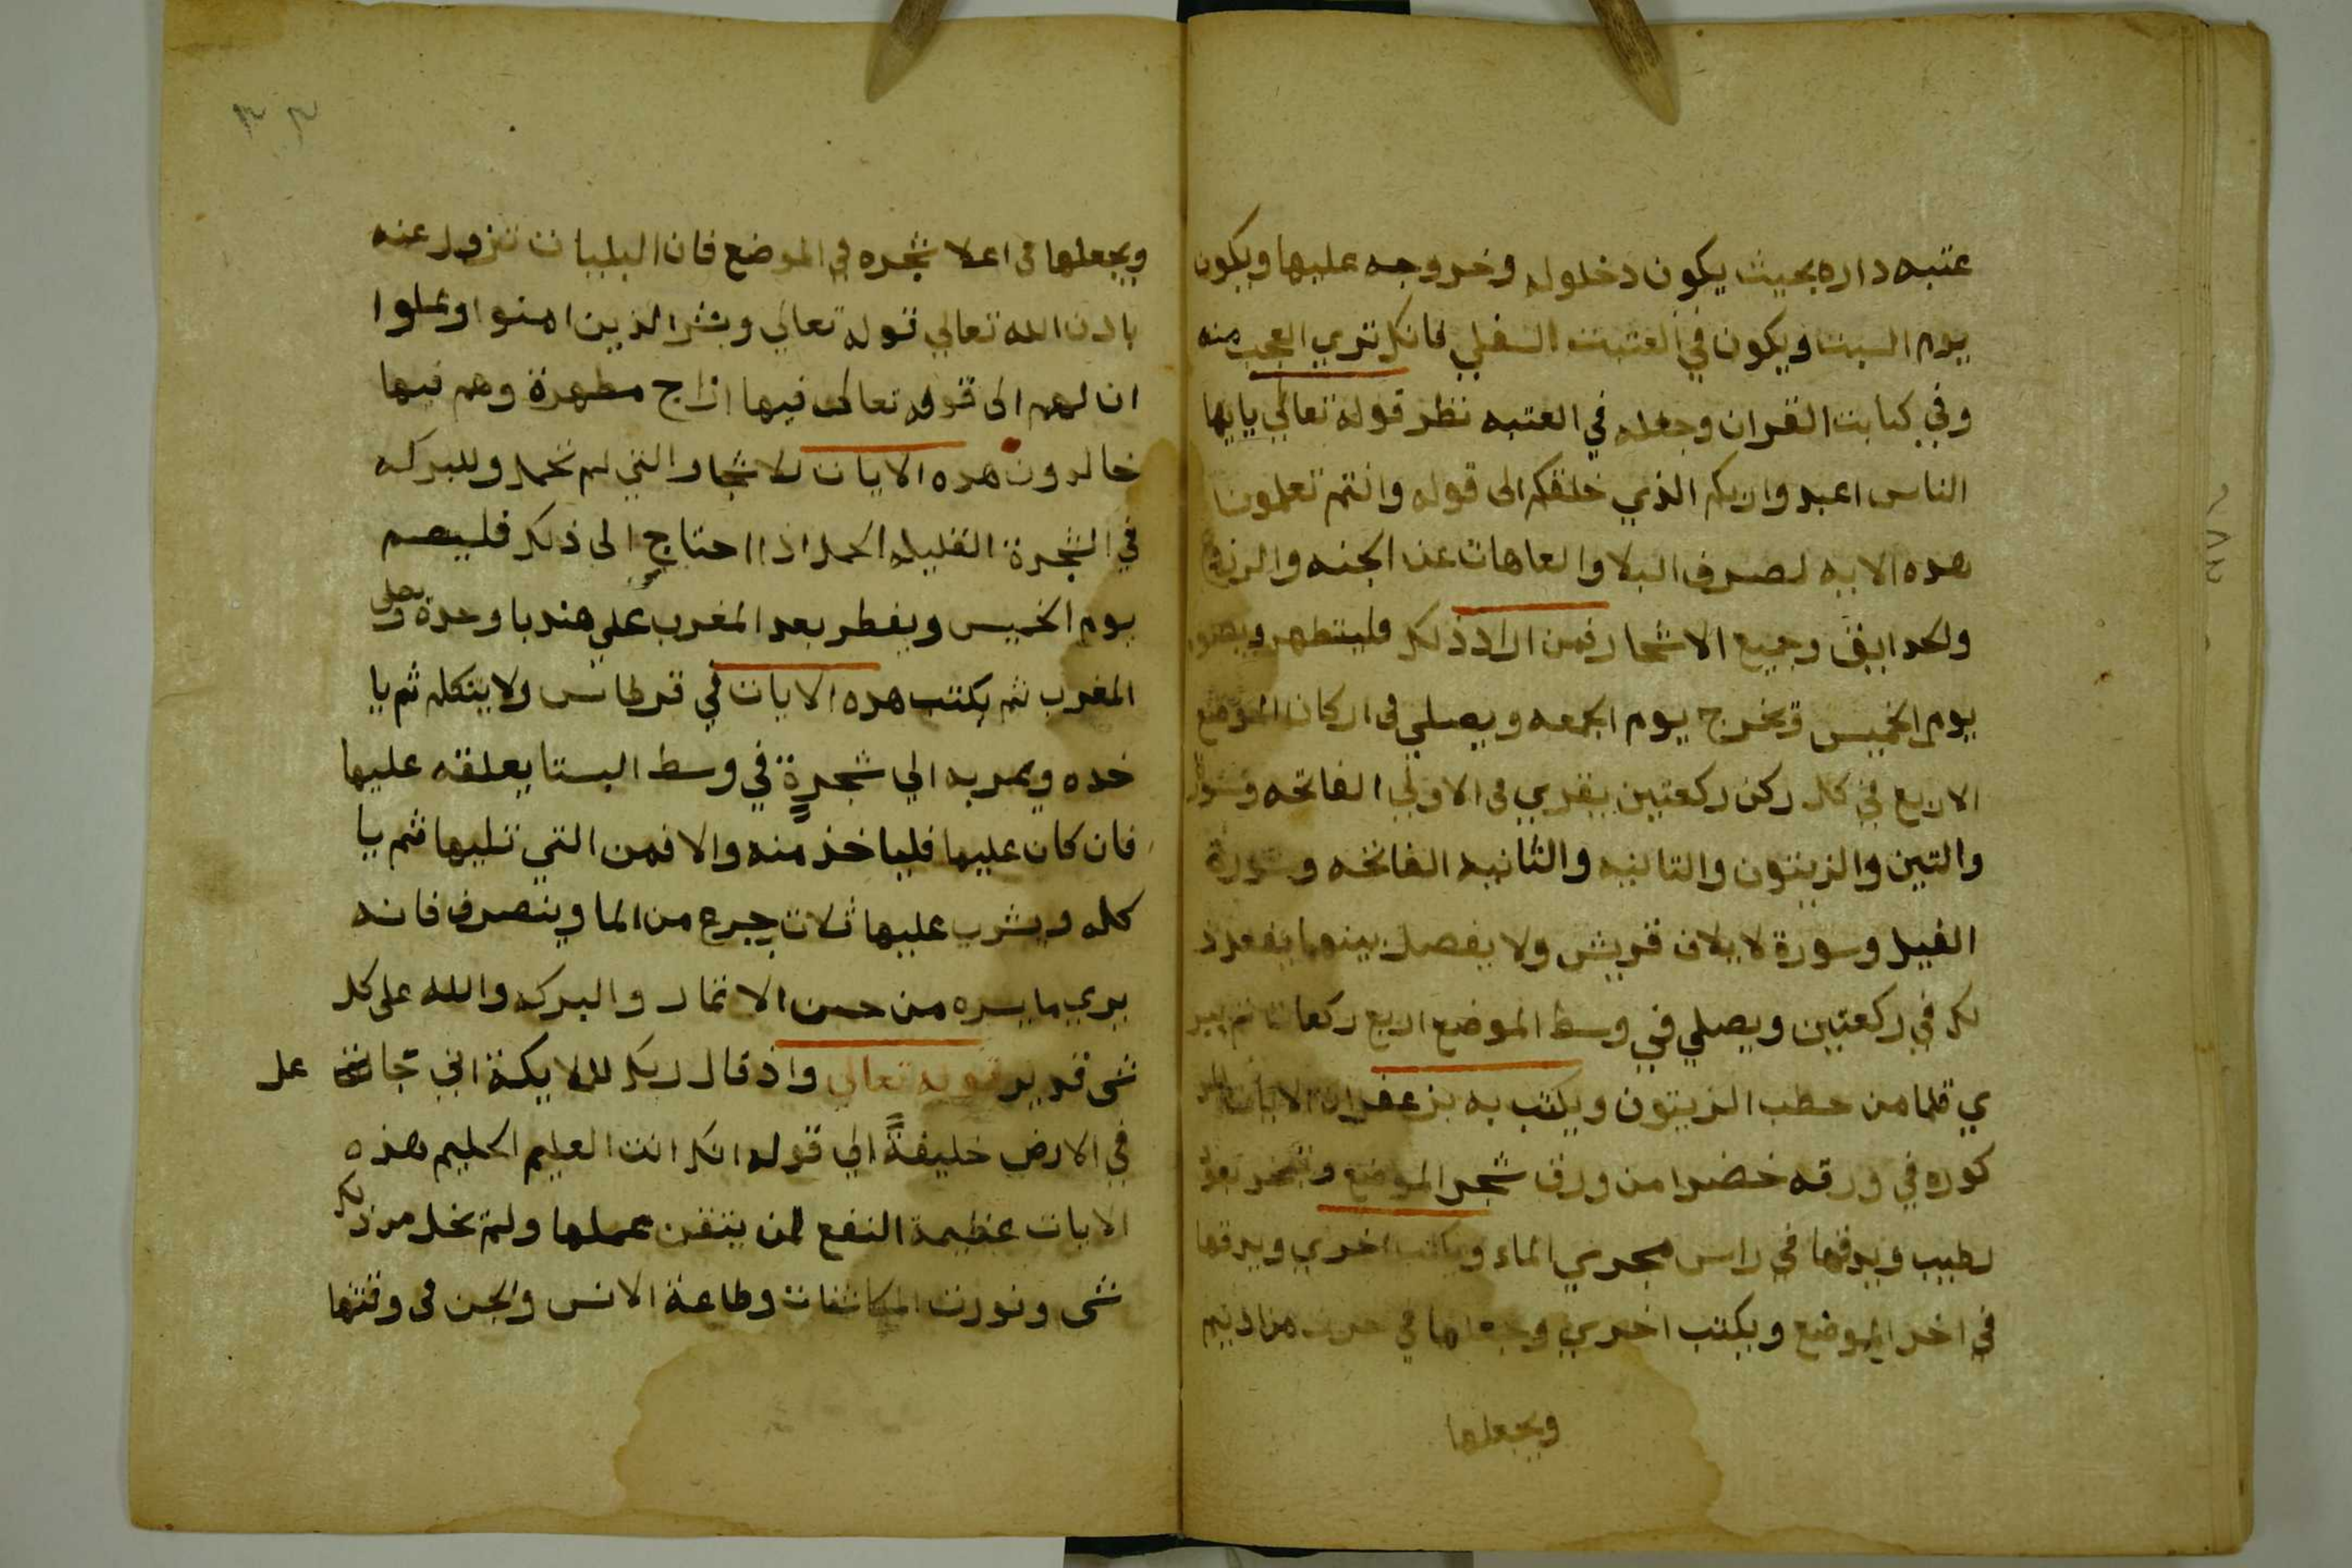 عتبه داره بحيث يكون دخلوله وخروجه عليها ويكون
يوم السبت ويكون في العتبت السفلي فانك تري العجب منه
وفي كتابت القران وجعله في العتبه نظر قوله تعالي يايها
الناس اعبدوا ربكم الذي خلقكم الى قوله وانتم تعلمون
هده الايه لصرف البلا والعاهات عن الجنه والزرع
ولحدايق وجميع الاشجار فمن اراد ذلك فليتطهر ويصوم
يوم الخميس ويخرج يوم الجمعه ويصلي في اركان الموضع
الاربع في كل ركن ركعتين يقري في الاولي الفاتحه وسورة
والتين والزيتون والتانيه والثانيه الفاتحه وسورة
الفيل وسورة لايلاف قريش ولا يفصل بينهما يفعل ذ
لك في ركعتين ويصلي في وسط الموضع اربع ركعات ثم يبر
ي قلما من حطب الزيتون ويكتب به بزعفران الايات المد
كوره في ورقه خضرا من ورق شجر الموضع وتبخر بعود
رطيب ويدفها في راس مجري الماء ويكتب اخري ويدفها
في اخر الموضع ويكتب اخري وجعلها في
ويجعلها
٣٣
ويجعلها في اعلا شجره في الموضع فان البليات تزول عنه
بادن الله تعالي قوله تعالي وبشر الذين امنوا وعملوا
ان لهم الى قوله تعالى فيها ازاج مطهرة وهم فيها
خالدون هده الايات للاشجار التي لم تحمل وللبركه
في الشجرة القليله الحمل اذا احتاج الى ذلك فليصم
يوم الخميس ويفطر بعد المغرب علي هندبا وحدة ويصلي
المغرب ثم يكتب هده الايات في قرطاس ولا يتكلم ثم يا
خده ويمر به الي شجرة في وسط البستا يعلقه عليها
فان كان عليها فلياخذ منه والا فمن التي تليها ثم يا
كله ويشرب عليها ثلات جرع من الما وينصرف فانه
يري ما يسره من حسن الاثمار والبركه والله على كل
شى قدير قوله تعالي واذ قال ربك للملايكة اني جا عل
في الارض خليفةً الي قوله انك انت العليم الحليم هذه
الايات عظيمة النفع لمن يتقن عملها ولم تخل من ذلك
شى ونورت المكاشفات وطاعة الانس والجن في وقتها